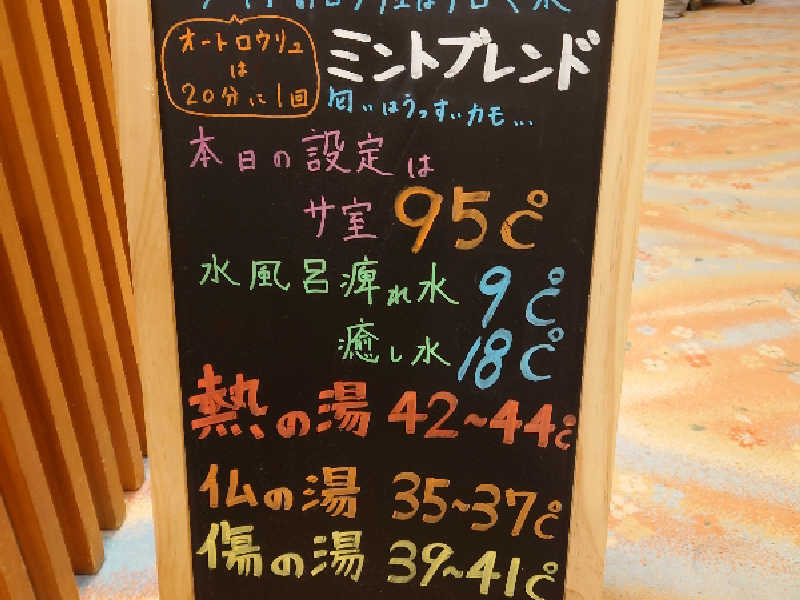 オートロウリュ
は
20分に1回
ミントブレンド
匂いはうっすいカモ...
本日の設定は
サ室 95℃
水風呂 痺れ水 9℃
癒し水 18℃
熱の湯 42~44℃
仏の湯 35~37℃
傷の湯 39~41℃